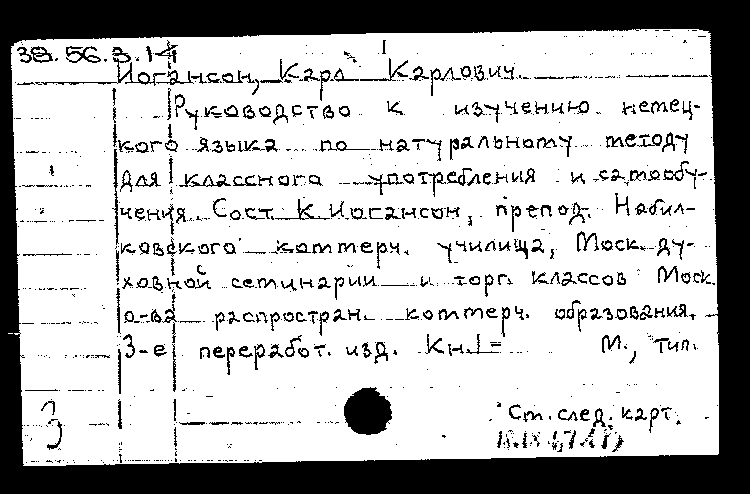 38.56.3.14
Иогансон, Карл Карлович.
Руководство к изучению немец-
кого языка по натуральному методу
для классного употребления и самообу-
чения. Сост. К. Иогансон, препод. Набил-
ковского коммерч. училища, Моск. ду-
ховной семинарии и торг. классов Моск.
о-ва распростран. коммерч. образования.
3-е переработ. изд. Кн. I= М., тип.
3
См. след. карт.